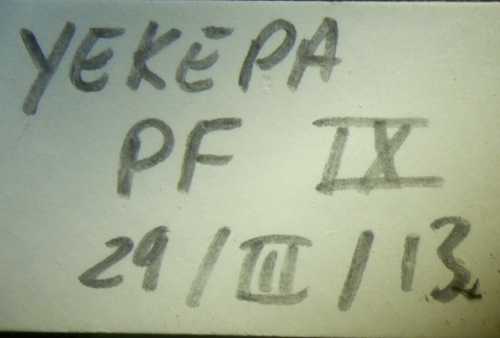 YEKEPA
PF IX
29/III/13